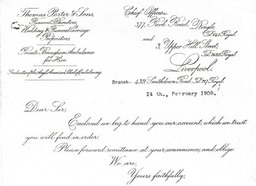 Thomas Porter & Sons,
Funeral Directors,
Wedding & General Carriage
Proprietors
Private Ambulance
for Hire
Chief Offices:-
377, Park Road, Dingle
and
3, Upper Hill Street,
Liverpool.
Branch:- 439, Smithdown Road,
14th, February 1908.
Dear Sir,
Enclosed we beg to hand you our account, which we trust
you will find in order.
Please forward remittance at your convenience, and oblige
We are,
Yours faithfully,